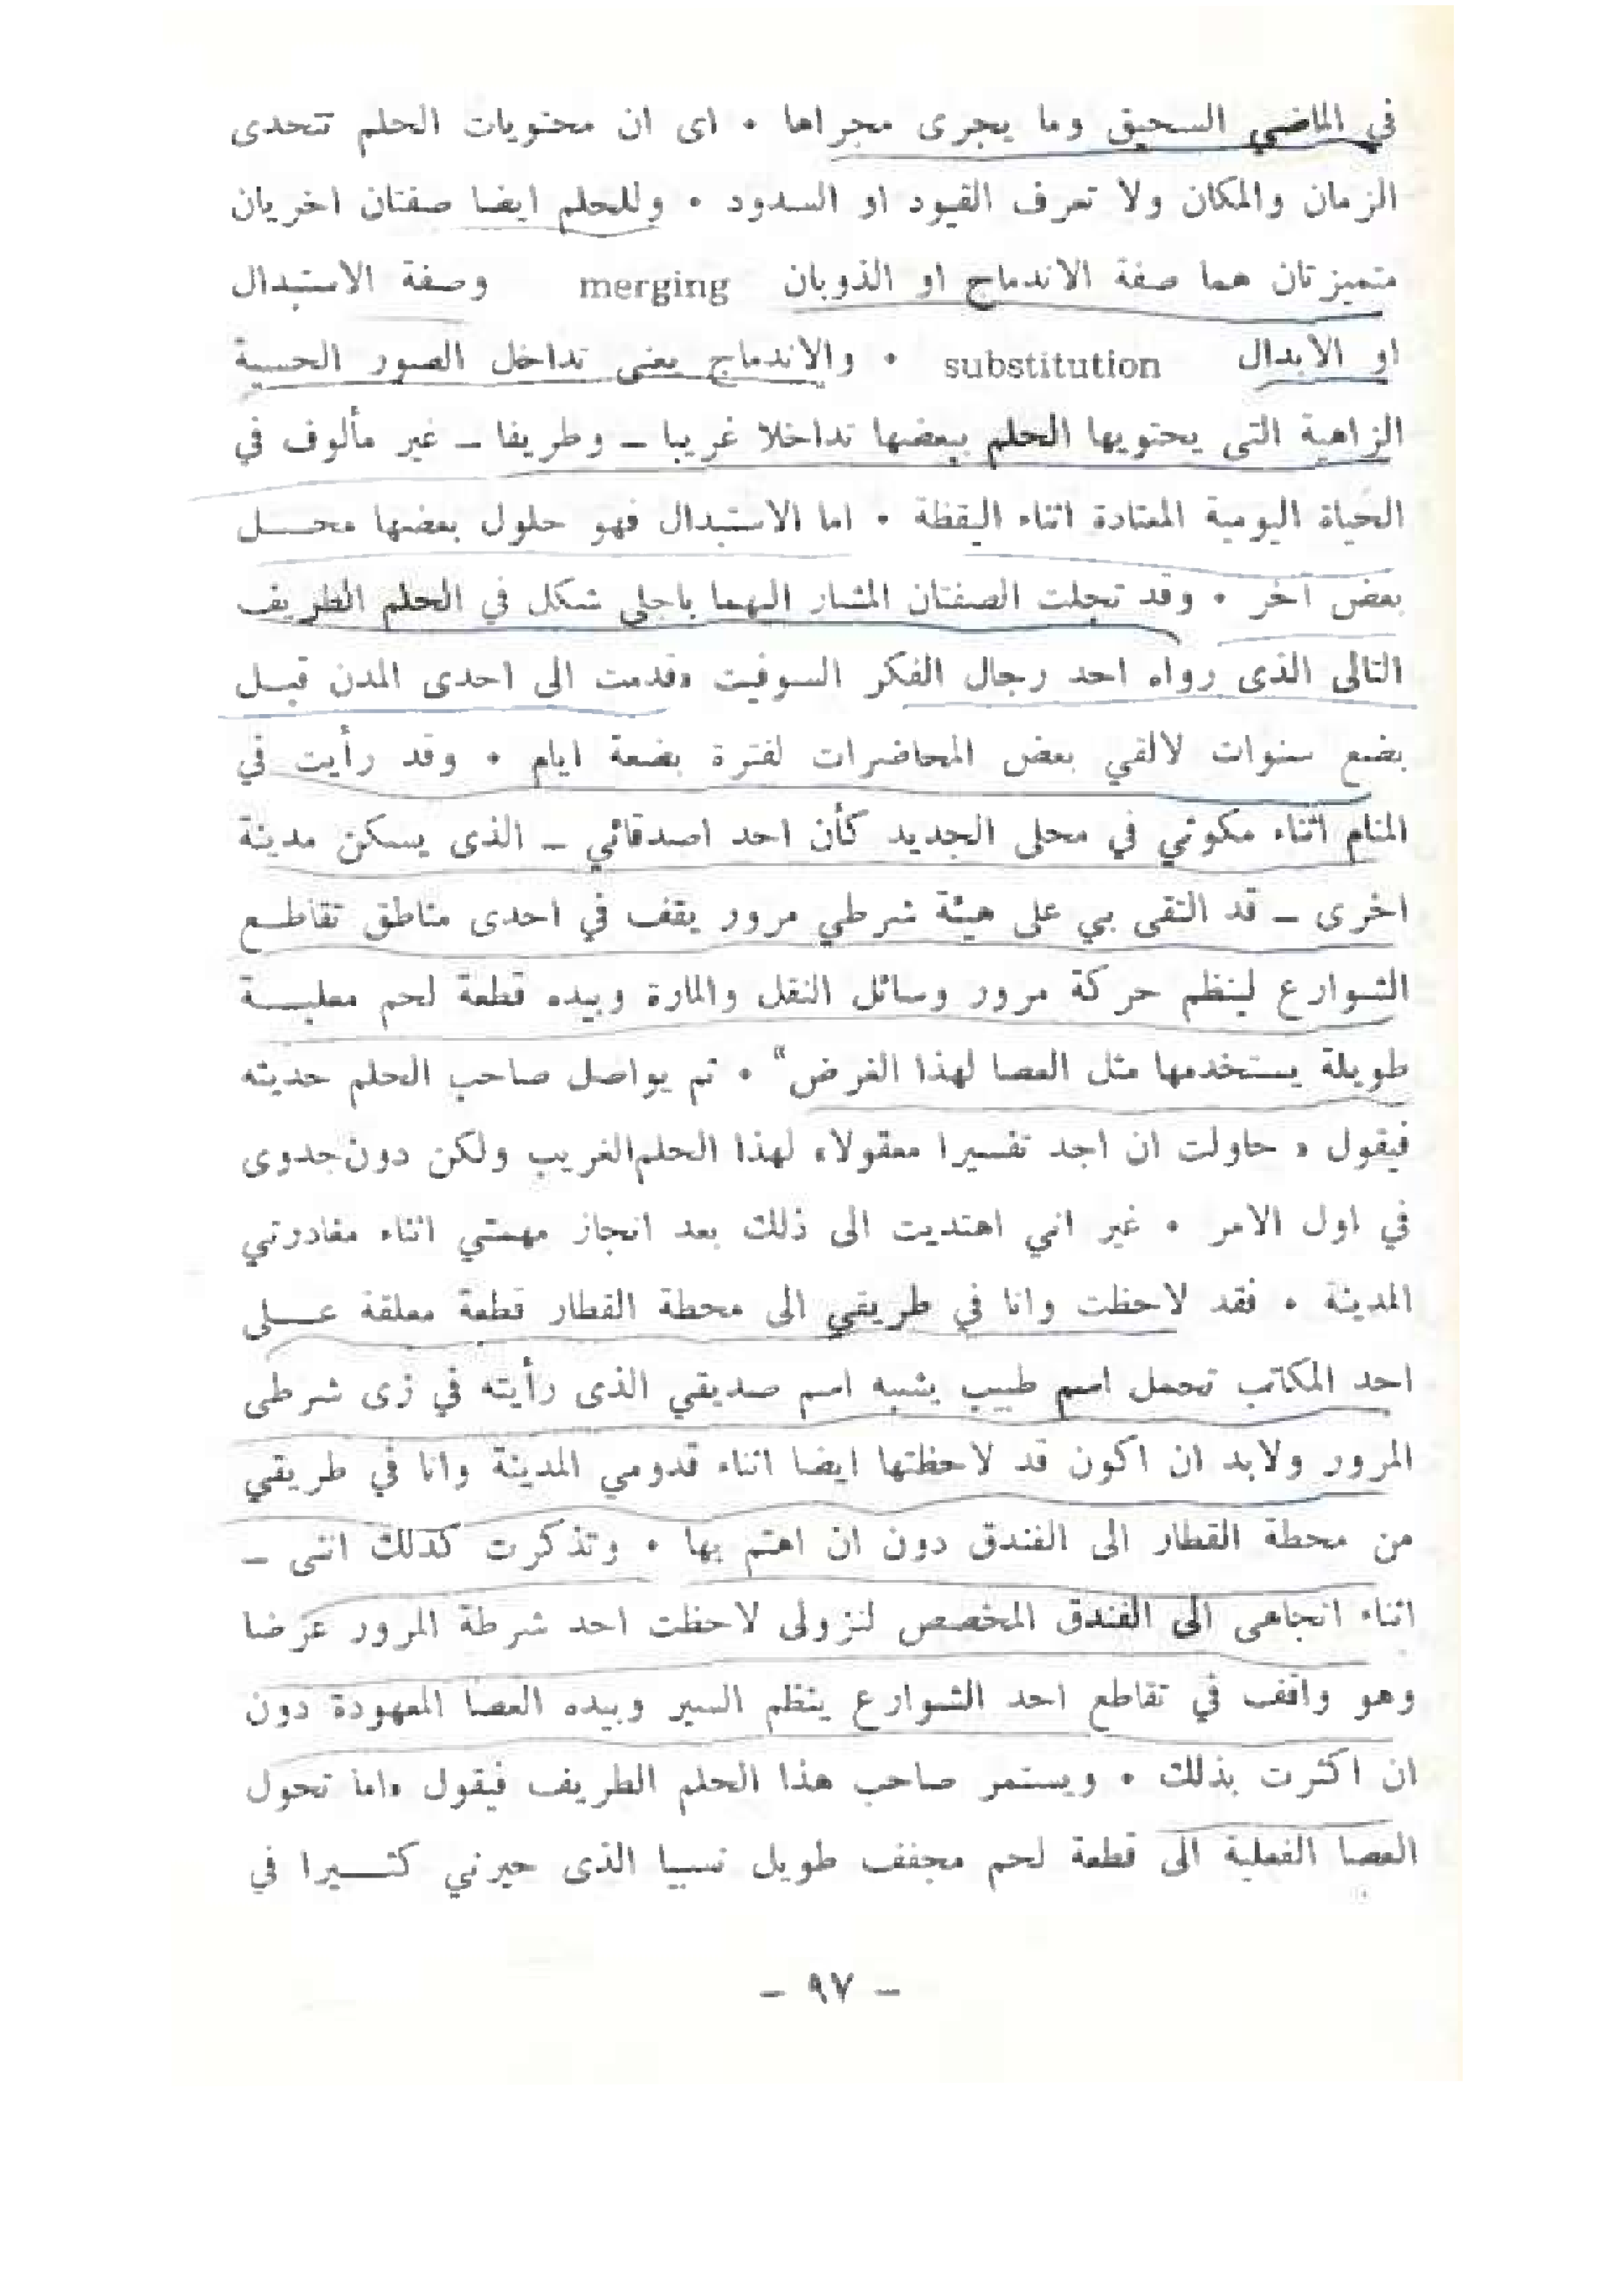 في الماضي السحيق وما يجرى مجراها • اى ان محتويات الحلم تتحدى
الزمان والمكان ولا تعرف القيود او السدود • وللحلم ايضا صفتان اخريان
متميزتان هما صفة الاندماج او الذوبان merging وصفة الاستبدال
او الابدال substitution • والاندماج يعنى تداخل الصور الحسية
الزاهية التى يحتويها الحلم ببعضها تداخلا غريبا – وطريفا – غير مألوف في
الحياة اليومية المعتادة اثناء اليقظة • اما الاستبدال فهو حلول بعضها محــل
بعض آخر • وقد تجلت الصفتان المشار اليهما باجلى شكل في الحلم الطريف
التالى الذى رواه احد رجال الفكر السوفيت «قدمت الى احدى المدن قبــل
بضع سنوات لالقي بعض المحاضرات لفترة بضعة ايام • وقد رأيت في
المنام اثناء مكوثي في محلى الجديد كأن احد اصدقائي – الذى يسكن مدينة
اخرى – قد التقى بي على هيئة شرطي مرور يقف في احدى مناطق تقاطــع
الشوارع لينظم حركة مرور وسائل النقل والمارة وبيده قطعة لحم معلبــة
طويلة يستخدمها مثل العصا لهذا الغرض" • ثم يواصل صاحب الحلم حديثه
فيقول « حاولت ان اجد تفسيرا معقولاء لهذا الحلم الغريب ولكن دون جدوى
في اول الامر • غير اني اهتديت الى ذلك بعد انجاز مهمتي اثناء مغادرتي
المدينة • فقد لاحظت وانا في طريقي الى محطة القطار قطعة معلقة عــلى
احد المكاتب تحمل اسم طبيب يشبه اسم صديقي الذى رأيته في زى شرطى
المرور ولابد ان اكون قد لاحظتها ايضا اثناء قدومي المدينة وانا في طريقي
من محطة القطار الى الفندق دون ان اهتم بها • وتذكرت كذلك اننى –
اثناء اتجاهى الى الفندق المخصص لنزولى لاحظت احد شرطة المرور عرضا
وهو واقف في تقاطع احد الشوارع ينظم السير وبيده العصا المعهودة دون
ان اكترث بذلك • ويستمر صاحب هذا الحلم الطريف فيقول «اما تحول
العصا الفعلية الى قطعة لحم مجفف طويل نسبيا الذى حيرني كثــيرا في
– ٩٧ –